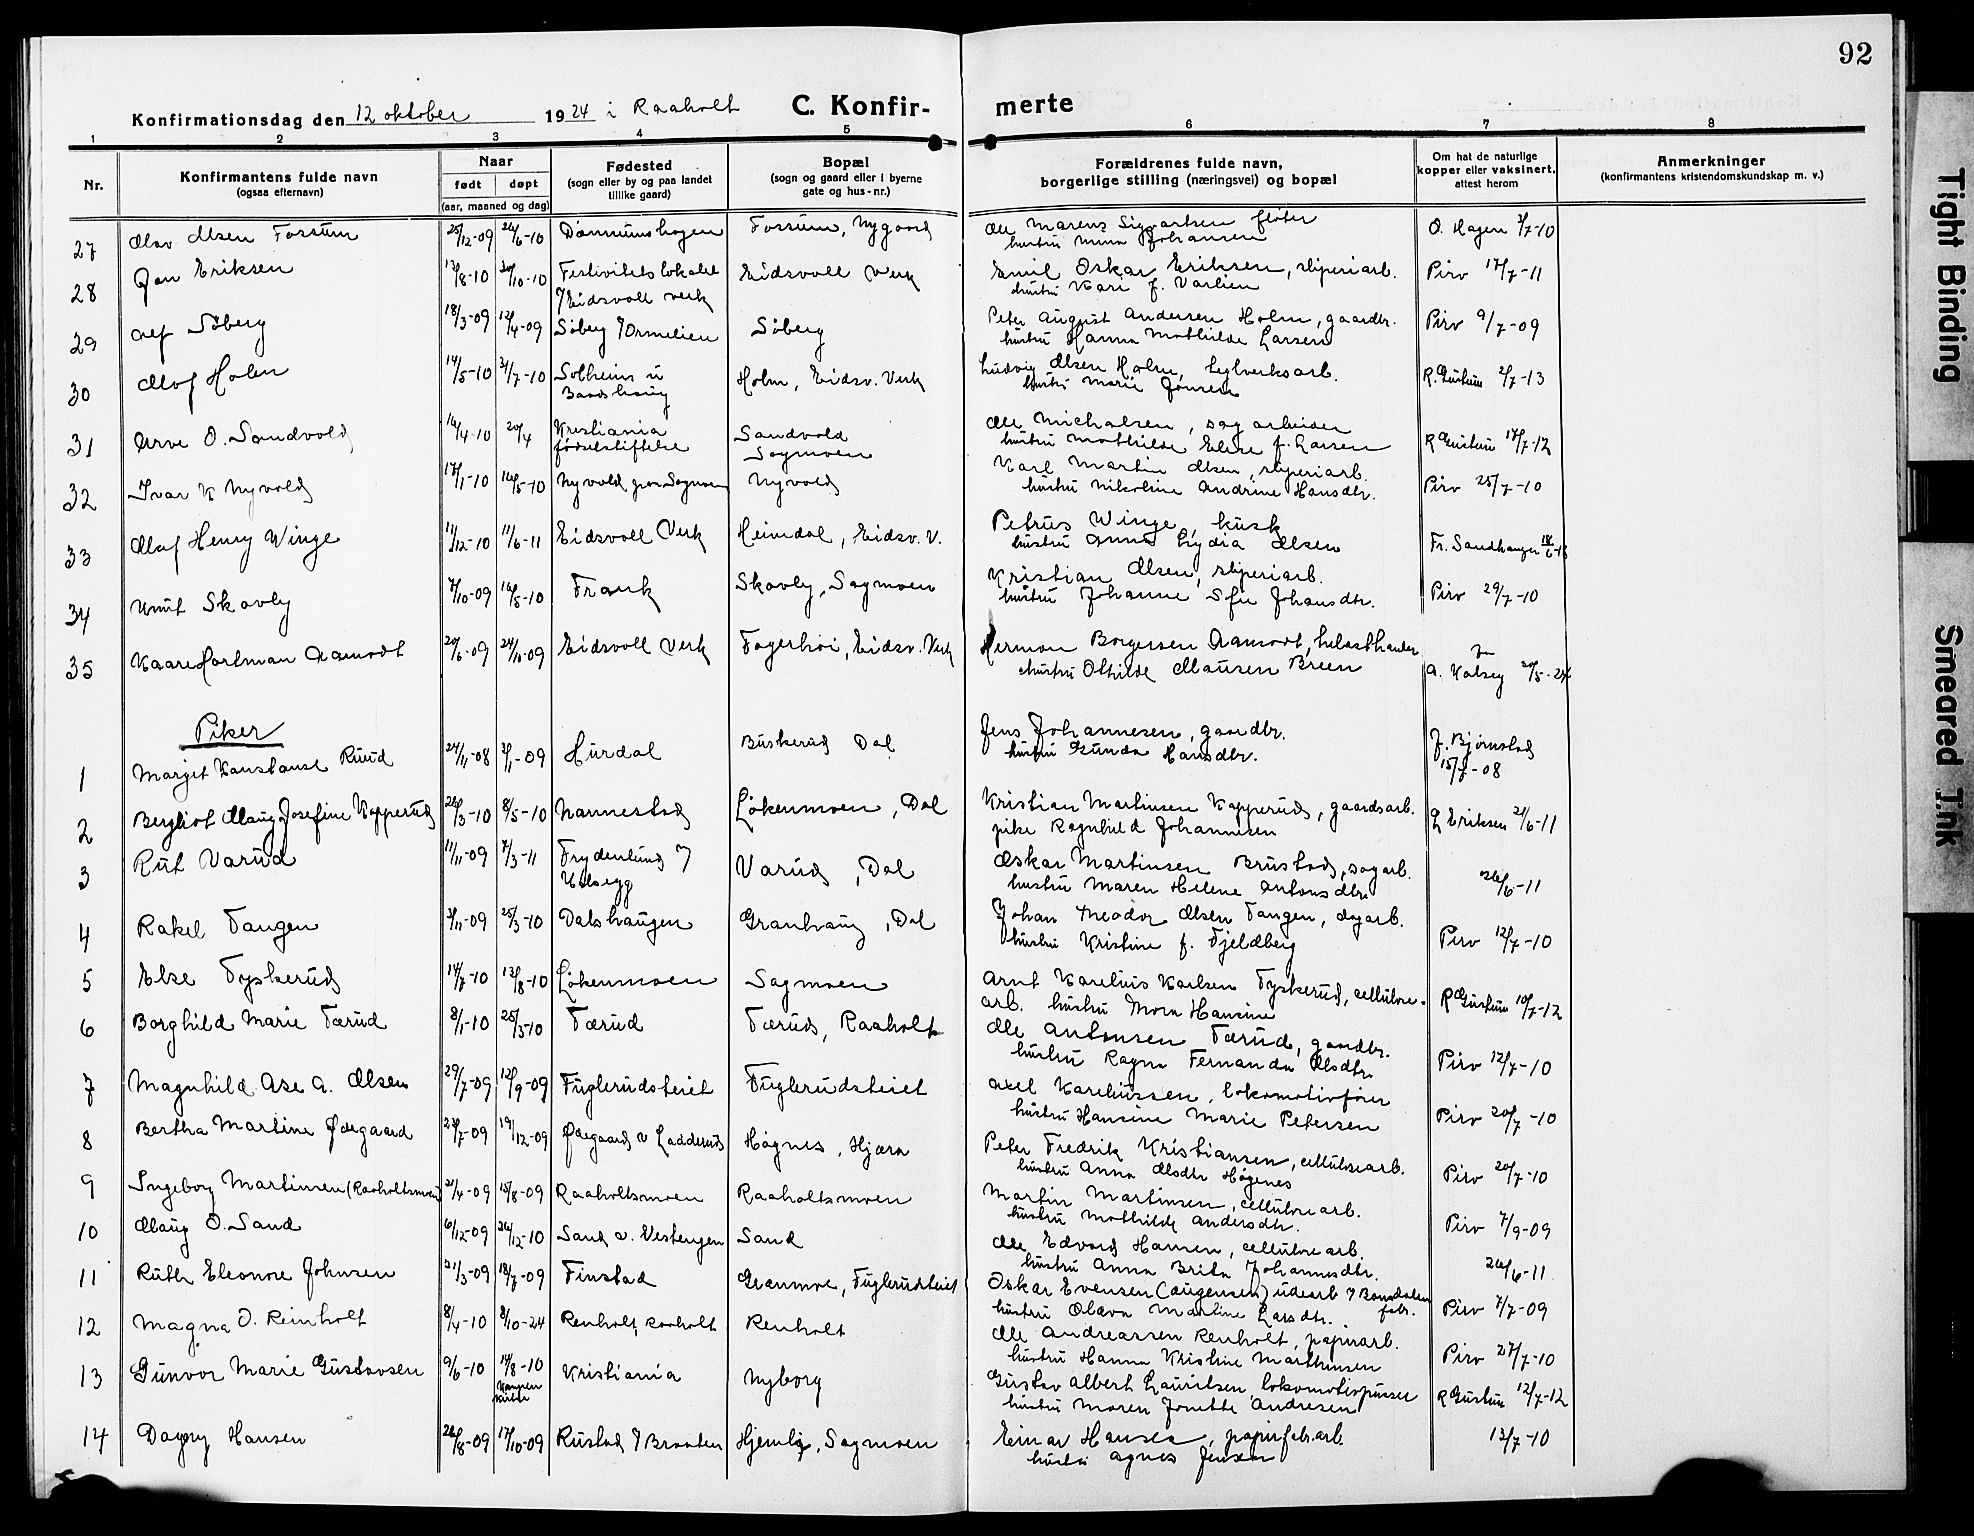 92
Konfirmationsdag den 12 oktober 1924 i Raaholt C. Konfir- merte
1 2 3 4 5 6 7 8
Nr. Konfirmantens fulde navn (ogsaa efternavn) Naar født døpt (aar, maaned og dag) Fødested (sogn eller by og paa landet tillike gaard) Bopæl (sogn og gaard eller i byerne gate og hus-nr.) Forældrenes fulde navn, borgerlige stilling (næringsvei) og bopæl Om hat de naturlige kopper eller vaksinert, attest herom Anmerkninger (konfirmantens kristendomskundskap m. v.)
27 Olav Olsen Fossum 25/12-09 26/6-10 Fossum, Nygaard Ole Marens Sigvartsen fløter O. Hagen 3/7-10
hustru Mina Johansen
28 Jan Eriksen 13/8-10 30/10-10 Festivitetslokalet Eidsvoll Verk Emil Oskar Eriksen, sliperiarb. Pirv 17/7-11
7 Eidsvoll verk hustru Kari f. Varlien
29 Alf Søberg 18/3-09 12/4-09 Søberg 7 Ormelien Søberg Peter August Andersen Holm, gaardbr. Pirv 9/7-09
hustru Hanna Mathilde Larsen
30 Olaf Holm 14/5-10 31/7-10 Solheim u Holm, Eidsv. Verk Ludvig Olsen Holm, teglverksarb. R. Gustum 2/7-13
Baadshaug hustru Marie Jonsen
31 Arve O. Sandvold 16/4-10 20/4 Kristiania Sandvold Ole Michalsen, sagarbeider R Gustum 17/7-12
fødselstiftelse Sagmoen hustru Mathilde Elise f. Larsen
32 Ivar K Nyvold 17/1-10 16/5-10 Nyvold Sagmoen Nyvold Karl Martin Olsen, sliperiarb. Pirv 25/7-10
hustru Nikoline Andrine Hansdtr.
33 Olaf Henry Winge 11/12-10 11/6-11 Eidsvoll Verk Heimdal, Eidsv. V. Petrus Winge, kusk Fr. Sandhanger
hustru Anna Lydia Olsen
34 Knut Skovly 7/10-09 16/5-10 Frank Skovly, Sagmoen Kristian Olsen, sliperiarb. Pirv 29/7-10
hustru Johanne Sofie Johansdtr.
35 Kaare Hartman Aamodt 20/6-09 24/10-09 Eidsvoll Verk Fagerhøi, Eidsv. Verk Herman Borgersen Aamodt,
hustru Othilde Mausen Breen A. Kolsey 20/5-24
Piker
1 Margit Konstanse Ruud 24/11-08 3/1-09 Hurdal Buskerud Dal Jens Johannesen, gaardbr. J. Bjørnstad
hustru Gunda Hansdtr. 15/7-08
2 Bergliot Olaug Josefine Kopperud 26/3-10 8/5-10 Nannestad Løkenmoen, Dal Kristian Martinsen Kopperud, gaardsarb. L Eriksen 21/6-11
pike Ragnhild Johannesen
3 Rut Varud 11/11-09 7/3-11 Frydenlund 7 Varud, Dal Oskar Martinsen Brustad, sagarb. 26/6-11
Habsegg hustru Maren Helene Antonsdtr.
4 Rakel Tangen 3/11-09 25/3-10 Dalshaugen Granhaug, Dal Johan Theodor Olsen Tangen, dagarb. Pirv 12/7-10
hustru Kristine f. Fjeldberg
5 Else Tyskerud 14/7-10 13/8-10 Løkenmoen Sagmoen Arnt Karelius Karlsen Tyskerud, cellulose-
arb. hustru Mora Hansine R Gustum 10/7-12
6 Borghild Marie Tærud 8/1-10 25/3-10 Tærud Tærud, Raaholt Ole Antonsen Tærud, gaardbr. Pirv 12/7-10
hustru Ragna Fernanda Olsdtr.
7 Magnhild Ase A. Olsen 29/7-09 12/9-09 Fuglerudsteiet Fuglerudsteiet Axel Kareliussen, lokomotivfører Pirv 20/7-10
hustru Hansine Marie Petersen
8 Bertha Martine Ødegaard 23/7-09 19/12-09 Ødegaard v Ladderud Høgnes, Hjera Peter Fredrik Kristiansen, cellulosearb. Pirv 20/7-10
hustru Anna Olsdtr Høgenes
9 Ingeborg Martinsen (Raaholtsmoen) 21/4-09 15/8-09 Raaholtsmoen Raaholtsmoen Martin Martinsen, cellulosearb. Pirv 7/9-09
hustru Mathilde Andersdtr.
10 Olaug O. Sand 6/12-09 26/12-10 Sand v. Vestengen Sand Ole Edvard Hansen, cellulosearb. 26/6-11
hustru Anna Brita Johannesdtr.
11 Ruth Eleonore Johnsen 21/3-09 18/7-09 Finstad Granmoe, Fuglerudsteiet Oskar Evensen (Augensen) 7 Bøndalen fabr. Pirv 7/7-09
hustru Olava Marline Larsdtr.
12 Magna O. Reinholt 8/4-10 8/10-24 Renholt, Raaholt Renholt Ole Andreassen Renholt, papirarb. Pirv 27/7-10
hustru Hanna Kristine Marthinsen
13 Gunvor Marie Gustavsen 9/6-10 14/8-10 Kristiania Nyborg Gustav Albert Lauritsen, lokomotivpusser R Gustum 12/7-12
hustru Maren Jonette Andresen
14 Dagny Hansen 26/8-09 17/10-09 Rustad 7 Braaten Hjemly, Sagmoen Einar Hansen, papirfabr.arb. 13/7-10
hustru Agnes Jensen
Tight Binding
Smeared Ink